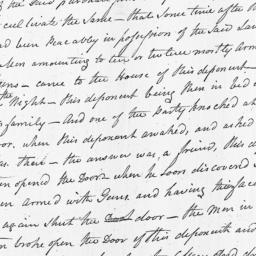 cultivate the Same — that Some time after
had been Peaceably in possession of the Said
Men amounting to ten or twelve mostly Arm
came to the House of this deponent
Night — this deponent being then in bed
family — And one of the Party knocked at
door, when this deponent awaked, and asked
was there — the answer was, a friend, this
then opened the Door when he soon discovered
men Armed with Guns and having their face
again shut the door — the Men in
then broke open the Door of this deponent and